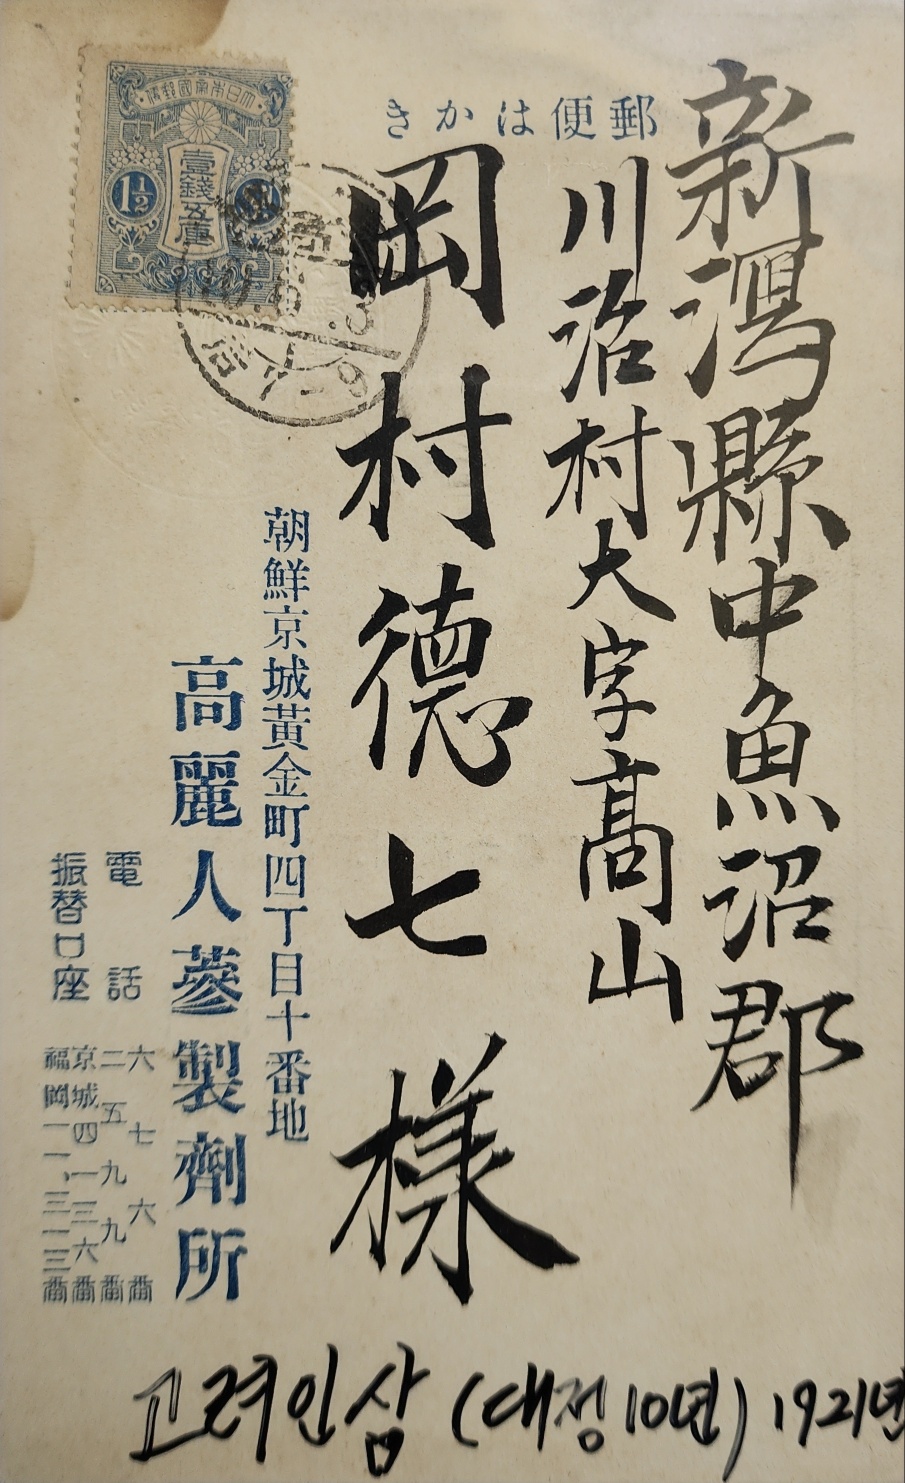 郵便はかき
新潟縣中魚沼郡
川治村大字高山
岡村德七様
大日本帝國郵便
壹錢五厘
1½
朝鮮京城黃金町四丁目十番地
高麗人蔘製劑所
電話 六七六番
二五九九番
振替口座 京城四一三六番
福岡一一、三一三番
고려인삼 (대정10년) 1921년